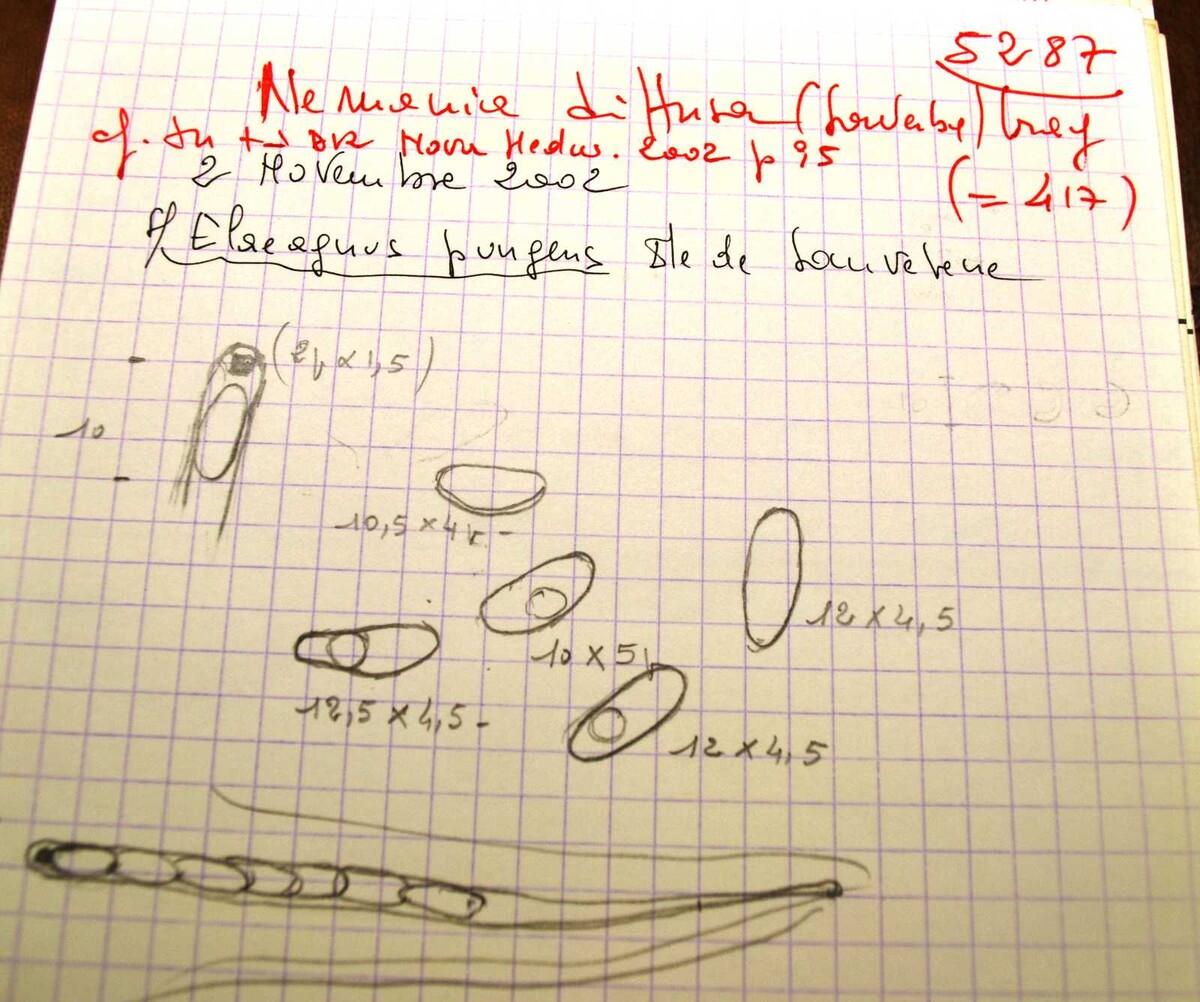 5287
Nemania diffusa (Sowerby) Gray
cf. Ju Nova Hedw. 2002 p 95
(= 417)
2 Novembre 2002
S/ Elaeagnus pungens Ile de
(2µ x 1,5)
10
10,5 x 4µ
12 x 4,5
10 x 5µ
12,5 x 4,5
12 x 4,5